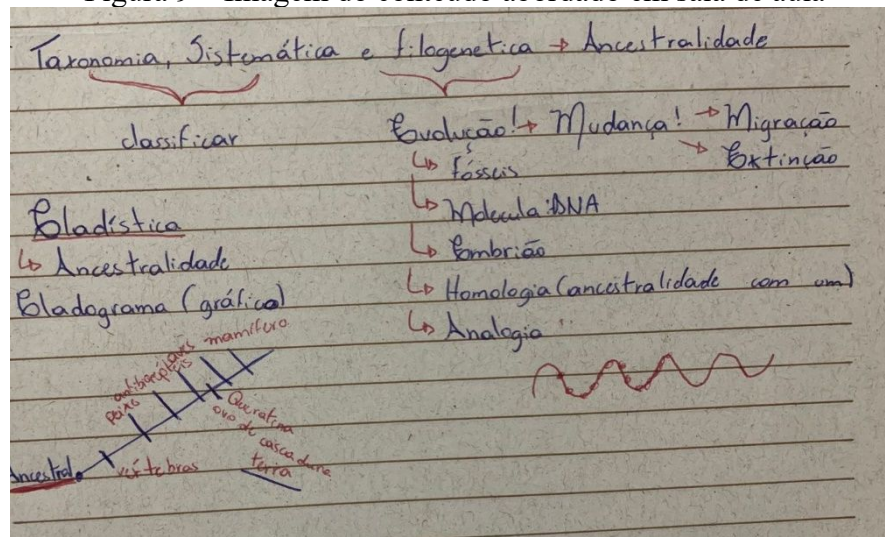 Figura 9 – Imagem do conteúdo abordado em sala de aula
Taxonomia, Sistemática e filogenetica → Ancestralidade
classificar
Evolução! → Mudança! → Migração
→ Extinção
↳ fósseis
↳ Molecula: DNA
↳ Embrião
↳ Homologia (ancestralidade com um)
↳ Analogia
Cladística
↳ Ancestralidade
Cladograma (gráfico)
peixe anfíbio répteis aves mamífero
Ancestral
vértebras
Queratina
ovo de casca dura
terra